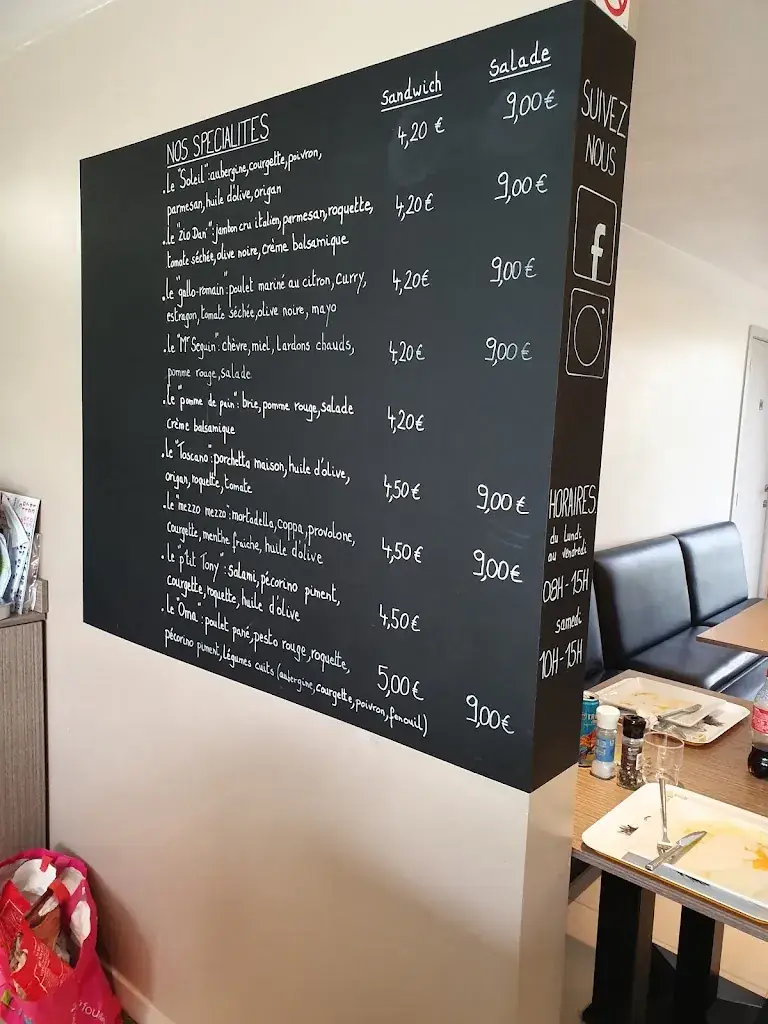 Sandwich
Salade
NOS SPECIALITES
4,20 €
9,00€
. Le "Soleil": aubergine, courgette, poivron,
parmesan, huile d'olive, origan
4,20€
9,00€
. Le "Zio Dan": jambon cru italien, parmesan, roquette,
tomate séchée, olive noire, crème balsamique
4,20€
9,00€
. Le "gallo-romain": poulet mariné au citron, curry,
estragon, tomate séchée, olive noire, mayo
4,20€
9,00€
. Le "Mr Seguin": chèvre, miel, Lardons chauds,
pomme rouge, salade
4,20€
. Le "pomme de pain": brie, pomme rouge, salade
crème balsamique
4,50€
9,00€
. Le "Toscano": porchetta maison, huile d'olive,
origan, roquette, tomate
4,50€
9,00€
. Le "mezzo mezzo": mortadella, coppa, provolone,
Courgette, menthe fraiche, huile d'olive
4,50€
. Le "p'tit Tony": salami, pécorino piment,
courgette, roquette, huile d'olive
5,00€
9,00€
. Le "Oma": poulet pané, pesto rouge, roquette,
pécorino piment, Légumes cuits (aubergine, courgette, poivron, fenouil)
SUIVEZ
NOUS
f
HORAIRES
du Lundi
au vendredi
08H-15H
samedi
10H-15H